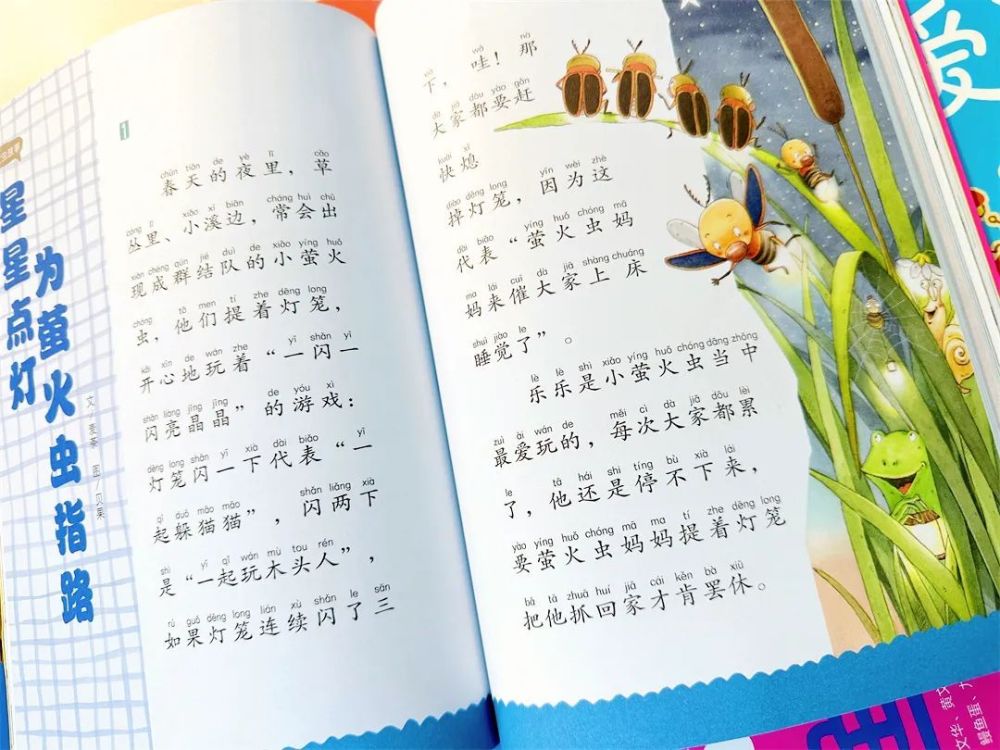 星星点灯
为萤火虫指路
文 麦茶 图 贝果
1
chūn tiān de yè lǐ cǎo
春天的夜里，草
cóng lǐ xiǎo xī biān cháng huì chū
丛里、小溪边，常会出
xiàn chéng qún jié duì de xiǎo yíng huǒ
现成群结队的小萤火
chóng tā men tí zhe dēng lóng
虫，他们提着灯笼，
kāi xīn de wán zhe yì shǎn yì
开心地玩着“一闪一
shǎn liàng jīng jīng de yóu xì
闪亮晶晶”的游戏：
dēng lóng shǎn yí xià dài biǎo yì
灯笼闪一下代表“一
qǐ duǒ māo māo shǎn liǎng xià
起躲猫猫”，闪两下
shì yì qǐ wán mù tou rén
是“一起玩木头人”，
rú guǒ dēng lóng lián xù shǎn le sān
如果灯笼连续闪了三
xià wā nà
下，哇！那
dà jiā dōu yào gǎn
大家都要赶
kuài xī
快熄
diào dēng lóng yīn wèi zhè
掉灯笼，因为这
dài biǎo yíng huǒ chóng mā
代表“萤火虫妈
ma lái cuī dà jiā shàng chuáng
妈来催大家上床
shuì jiào le
睡觉了”。
lè lè shì xiǎo yíng huǒ chóng dāng zhōng
乐乐是小萤火虫当中
zuì ài wán de měi cì dà jiā dōu lèi
最爱玩的，每次大家都累
le tā hái shi tíng bú xià lái
了，他还是停不下来，
yào yíng huǒ chóng mā ma tí zhe dēng lóng
要萤火虫妈妈提着灯笼
bǎ tā zhuā huí jiā cái kěn bà xiū
把他抓回家才肯罢休。
爱